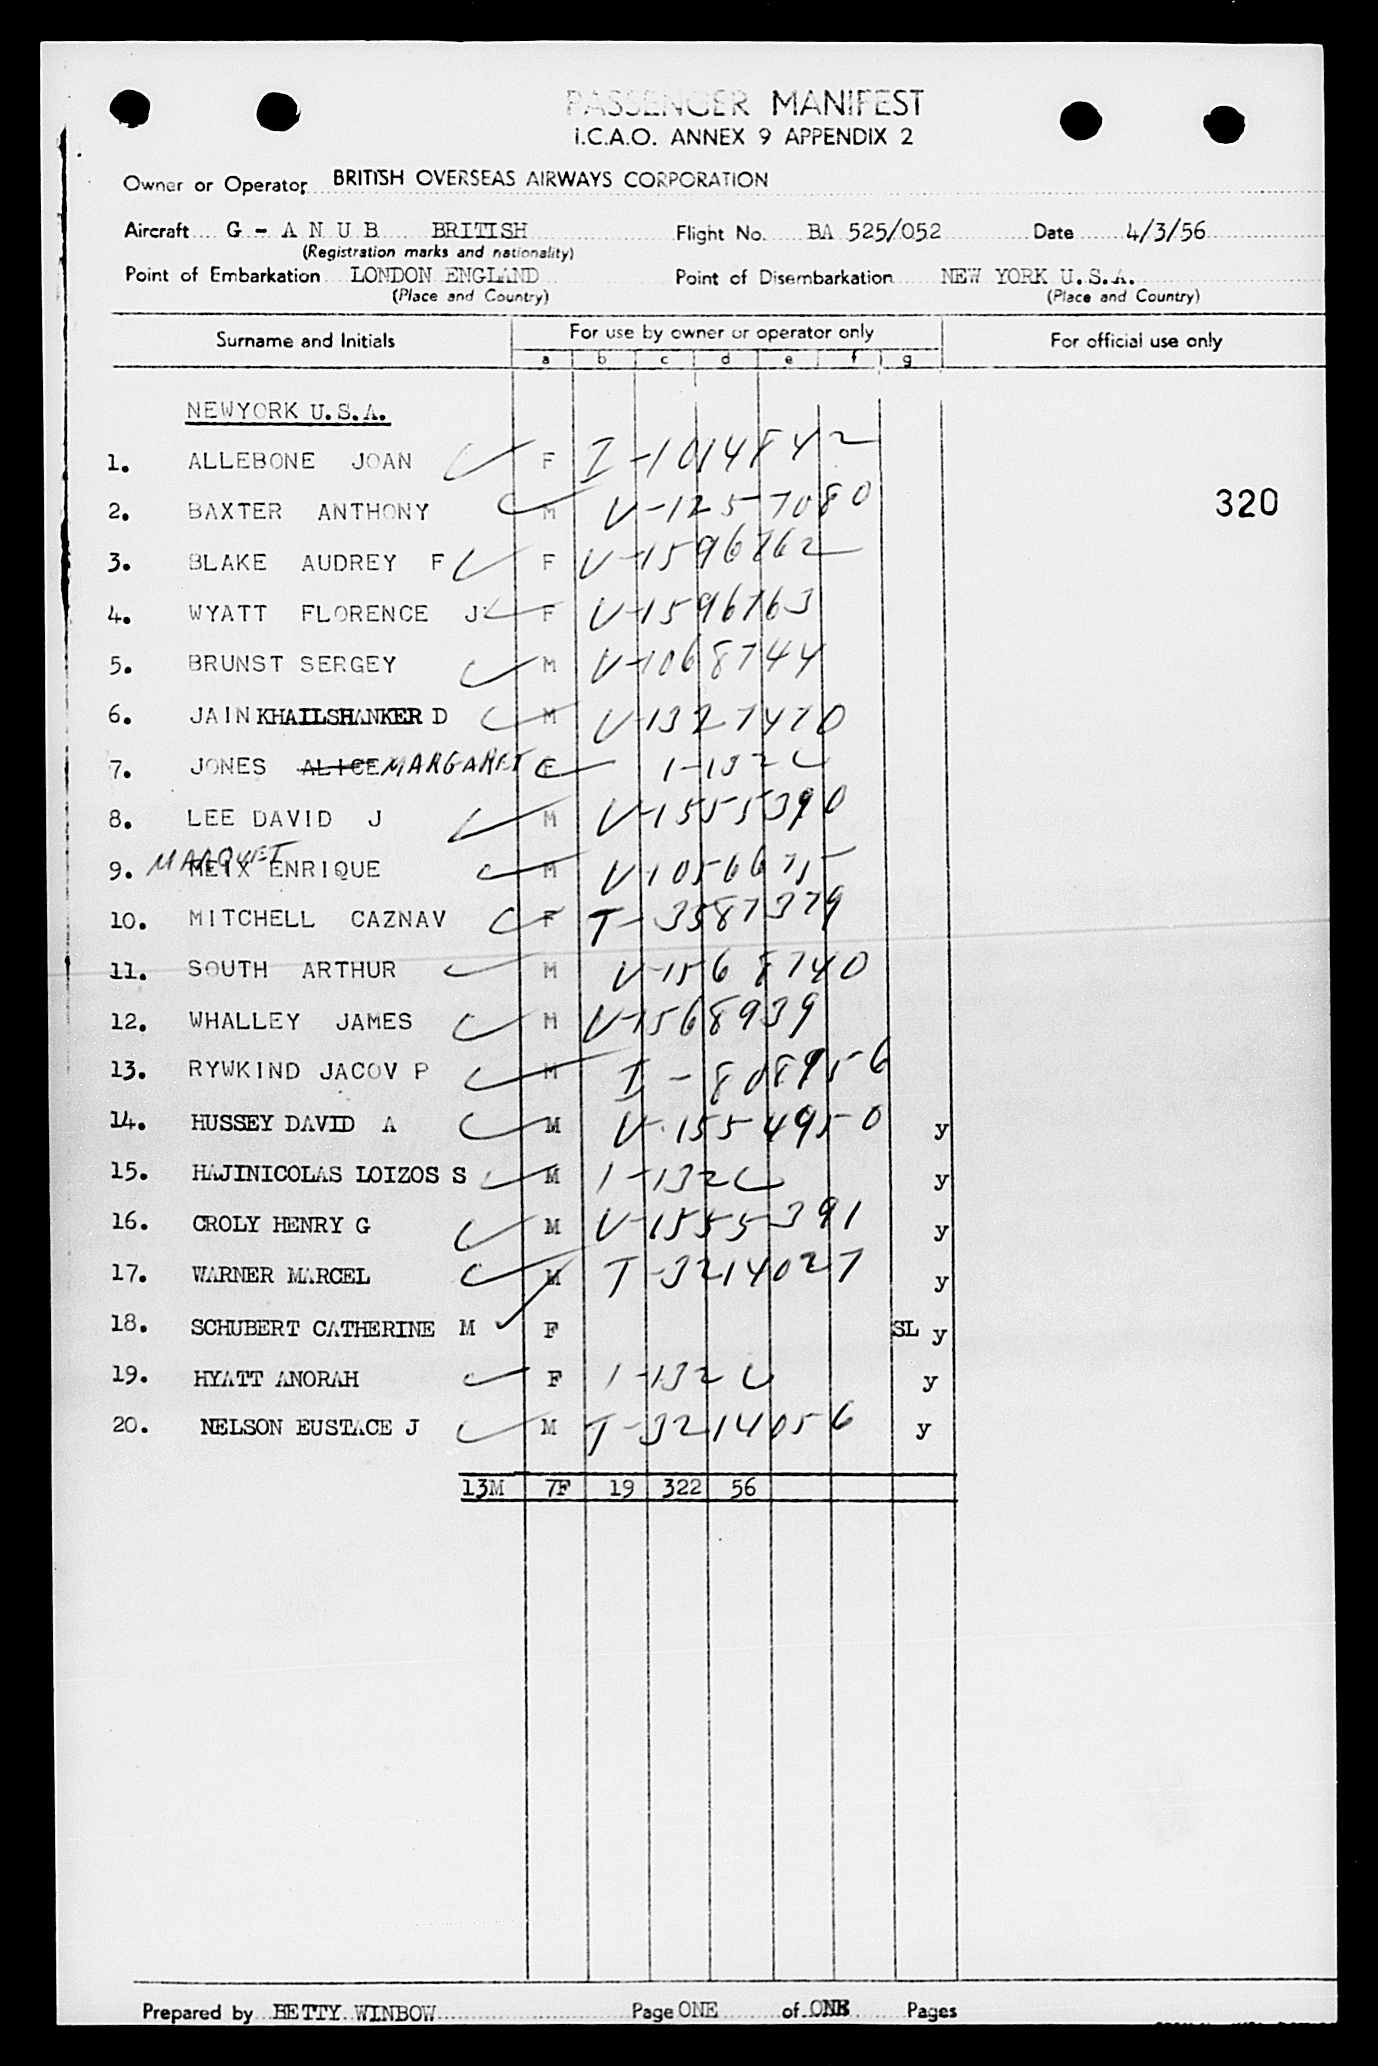 PASSENGER MANIFEST
I.C.A.O. ANNEX 9 APPENDIX 2
Owner or Operator BRITISH OVERSEAS AIRWAYS CORPORATION
Aircraft G - A N U B BRITISH Flight No. BA 525/052 Date 4/3/56
(Registration marks and nationality)
Point of Embarkation LONDON ENGLAND Point of Disembarkation NEW YORK U.S.A.
(Place and Country) (Place and Country)
Surname and Initials For use by owner or operator only For official use only
a b c d e f g
NEWYORK U.S.A.
1. ALLEBONE JOAN F I-1014842
320
2. BAXTER ANTHONY M V-1257080
3. BLAKE AUDREY F F V-1596762
4. WYATT FLORENCE J F V-1596763
5. BRUNST SERGEY M V-1068744
6. JAIN KHAILSHANKER D M V-1327470
7. JONES ALICE MARGARET F 1-132 C
8. LEE DAVID J M V-1555390
9. MARQUET MEIX ENRIQUE M V-1056675
10. MITCHELL CAZNAV F T-3587379
11. SOUTH ARTHUR M V-1568740
12. WHALLEY JAMES M V-1568939
13. RYWKIND JACOV P M I-808956
14. HUSSEY DAVID A M V-1554950 y
15. HAJINICOLAS LOIZOS S M 1-132 C y
16. CROLY HENRY G M V-1555391 y
17. WARNER MARCEL M T-3214027 y
18. SCHUBERT CATHERINE M F SL y
19. HYATT ANORAH F 1-132 C y
20. NELSON EUSTACE J M T-3214056 y
13M 7F 19 322 56
Prepared by BETTY WINBOW Page ONE of ONE Pages